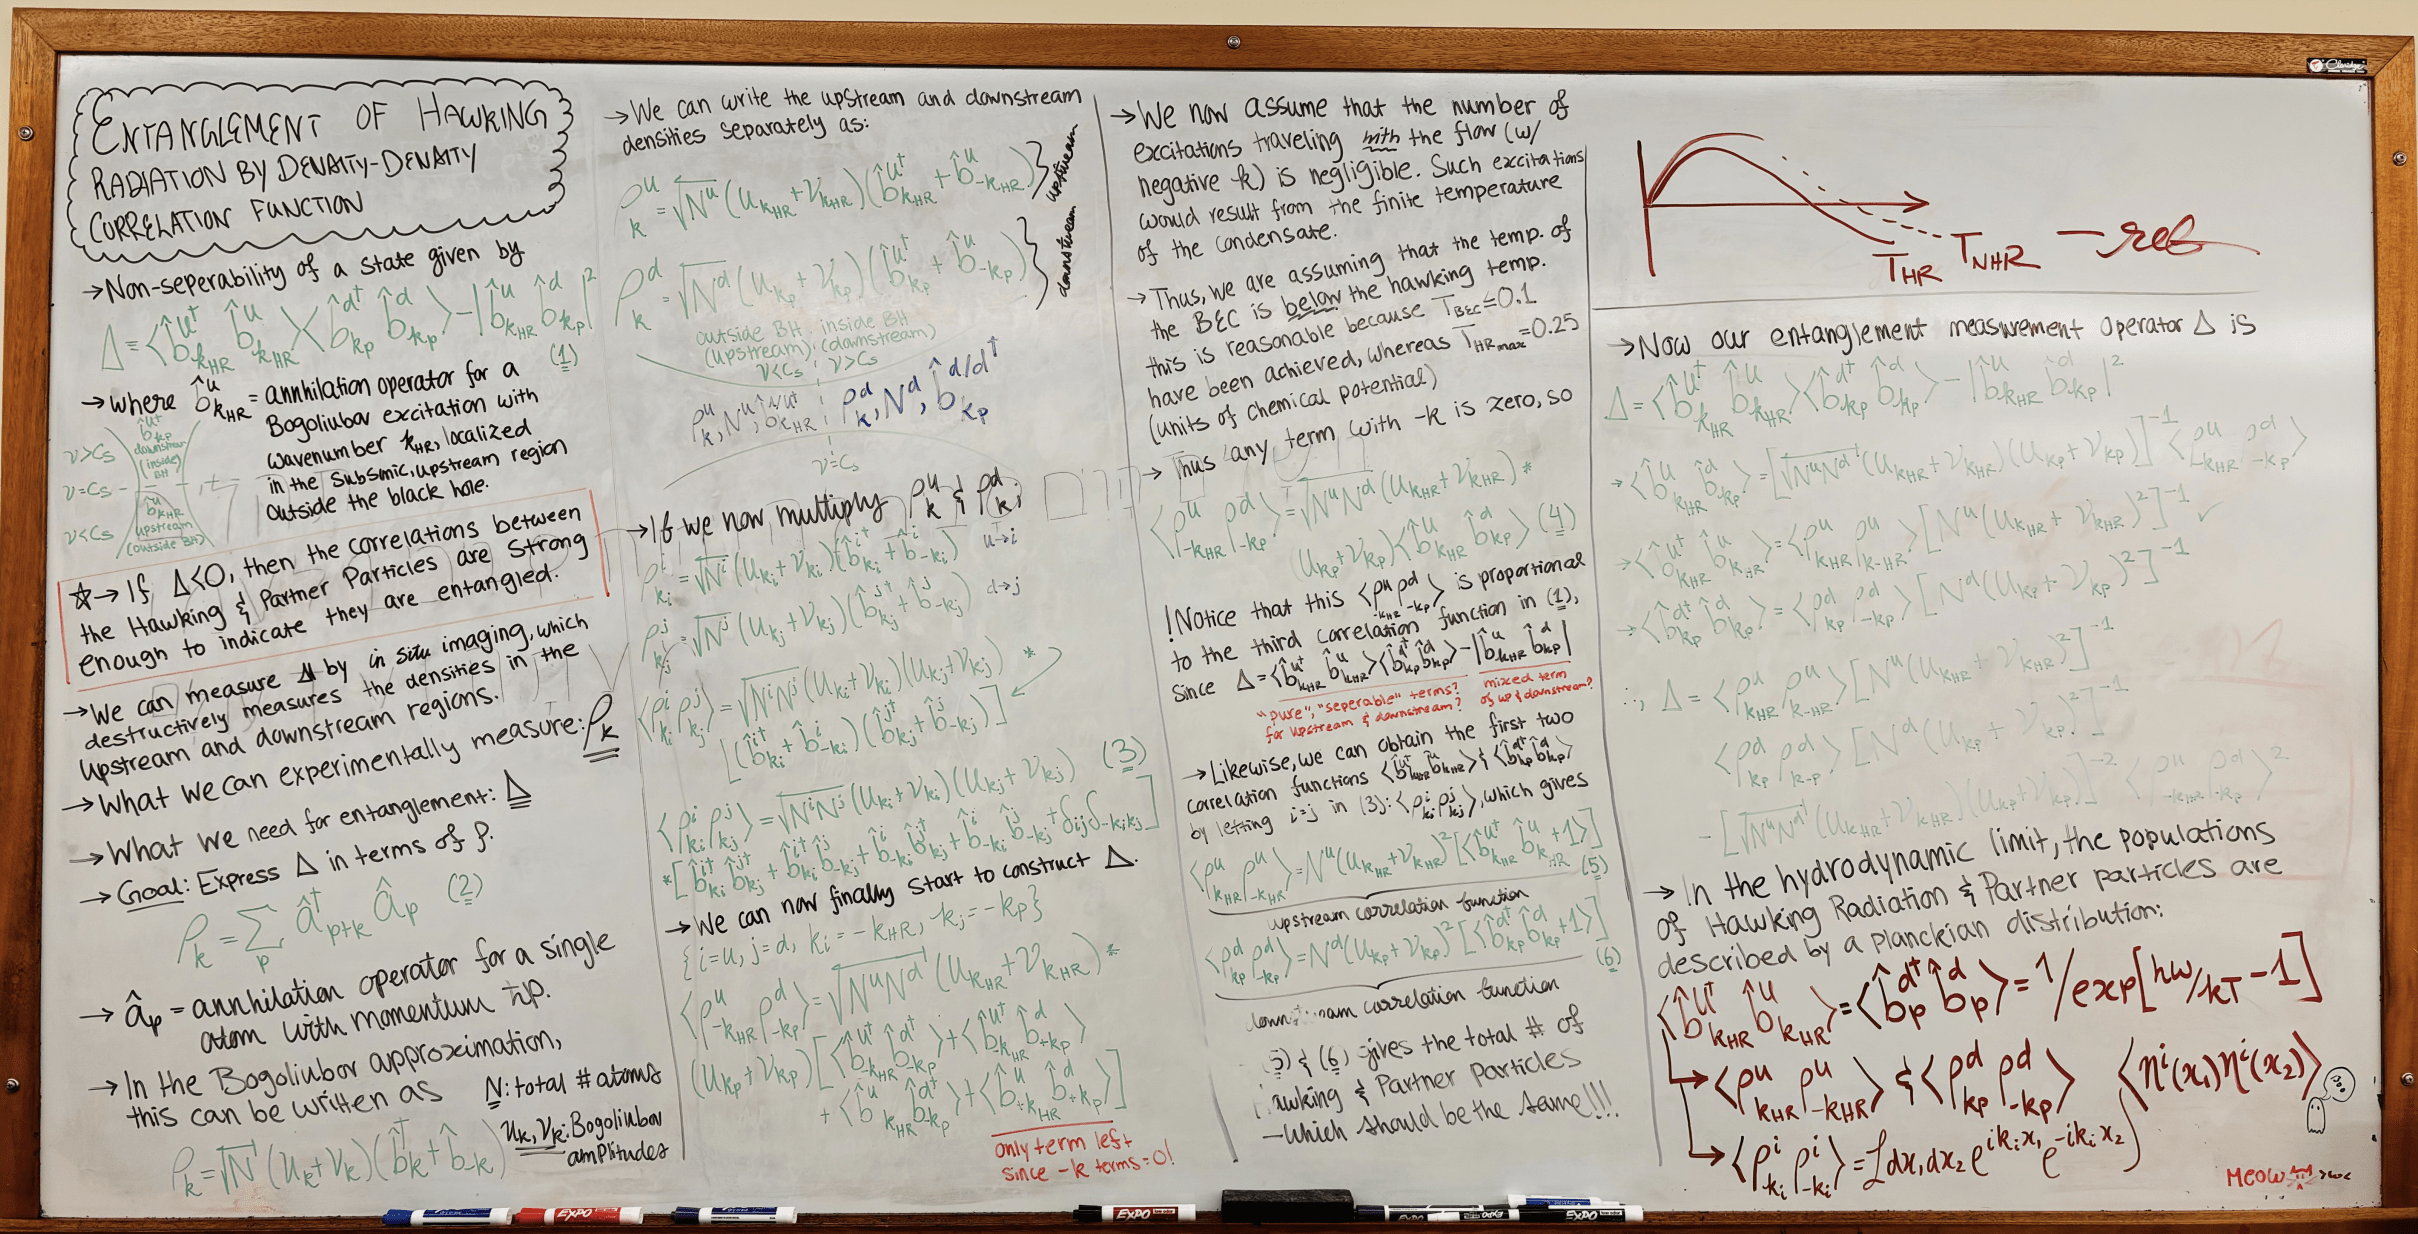 ENTANGLEMENT OF HAWKING
RADIATION BY DENSITY-DENSITY
CORRELATION FUNCTION
→Non-seperability of a state given by
Δ = ⟨b̂ᵘ†_kHR b̂ᵘ_kHR⟩⟨b̂ᵈ†_kp b̂ᵈ_kp⟩ - |b̂ᵘ_kHR b̂ᵈ_kp|²
(1)
→where b̂ᵘ_kHR = annhilation operator for a
Bogoliubov excitation with
wavenumber kHR, localized
in the subsonic, upstream region
outside the black hole.
ν>Cs
ν=Cs
ν<Cs
b̂ᵘ†_kp
downstream
(inside)
BH
b̂ᵘ_kHR
upstream
(outside BH)
☆→ If Δ<0, then the correlations between
the Hawking & Partner Particles are strong
enough to indicate they are entangled.
→We can measure Δ by in situ imaging, which
destructively measures the densities in the
upstream and downstream regions.
→What we can experimentally measure: ρk
→What we need for entanglement: Δ
→Goal: Express Δ in terms of ρ.
ρk = Σp â†p+k âp (2)
→ âp = annhilation operator for a single
atom with momentum ħp.
→In the Bogoliubov approximation,
this can be written as
N: total # atoms
ρk = √N (uk+νk)(b̂†k + b̂-k)
uk, νk: Bogoliubov
amplitudes
→We can write the upstream and downstream
densities separately as:
ρᵘk = √Nᵘ (u_kHR + ν_kHR)(b̂ᵘ†_kHR + b̂ᵘ_-kHR) } upstream
ρᵈk = √Nᵈ (u_kp + ν_kp)(b̂ᵘ†_kp + b̂ᵘ_-kp) } downstream
outside BH inside BH
(upstream) (downstream)
ν<Cs ν>Cs
ρᵘk, Nᵘ, b̂ᵘ/ᵘ†_kHR ρᵈk, Nᵈ, b̂ᵈ/ᵈ†_kp
ν=Cs
→If we now multiply ρᵘk & ρᵈk;
ρⁱki = √Nⁱ (uki + νki)(b̂ⁱ†ki + b̂ⁱ-ki) u→i
ρʲkj = √Nʲ (ukj + νkj)(b̂ʲ†kj + b̂ʲ-kj) d→j
⟨ρⁱki ρʲkj⟩ = √NⁱNʲ (uki+νki)(ukj+νkj) *
[(b̂ⁱ†ki + b̂ⁱ-ki)(b̂ʲ†kj + b̂ʲ-kj)]
(3)
⟨ρⁱki ρʲkj⟩ = √NⁱNʲ (uki+νki)(ukj+νkj)
*[b̂ⁱ†ki b̂ʲ†kj + b̂ⁱ†ki b̂ʲ-kj + b̂ⁱ-ki b̂ʲ†kj + b̂ⁱ-ki b̂ʲ-kj + δij δ-kikj]
→We can now finally start to construct Δ.
{i=u, j=d, ki=-kHR, kj=-kp}
⟨ρᵘ-kHR ρᵈ-kp⟩ = √NᵘNᵈ (u_kHR + ν_kHR)*
(u_kp + ν_kp)[⟨b̂ᵘ†-kHR b̂ᵈ†-kp⟩ + ⟨b̂ᵘ†-kHR b̂ᵈ+kp⟩
+ ⟨b̂ᵘkHR b̂ᵈ†-kp⟩ + ⟨b̂ᵘ+kHR b̂ᵈ+kp⟩]
only term left
since -k terms=0!
→We now assume that the number of
excitations traveling with the flow (w/
negative k) is negligible. Such excitations
would result from the finite temperature
of the condensate.
→ Thus, we are assuming that the temp. of
the BEC is below the hawking temp.
this is reasonable because TBEC≤0.1
have been achieved, whereas THRmax=0.25
(units of chemical potential)
→ Thus any term with -k is zero, so
⟨ρᵘ-kHR ρᵈ-kp⟩ = √NᵘNᵈ (u_kHR + ν_kHR)*
(u_kp + ν_kp)⟨b̂ᵘkHR b̂ᵈkp⟩ (4)
!Notice that this ⟨ρᵘ-kHR ρᵈ-kp⟩ is proportional
to the third correlation function in (1),
since Δ=⟨b̂ᵘ†kHR b̂ᵘkHR⟩⟨b̂ᵈ†kp b̂ᵈkp⟩-|b̂ᵘkHR b̂ᵈkp|
"pure", "seperable" terms?
for upstream & downstream?
mixed term
of up & downstream?
→Likewise, we can obtain the first two
correlation functions ⟨b̂ᵘ†kHR b̂ᵘkHR⟩ & ⟨b̂ᵈ†kp b̂ᵈkp⟩
by letting i=j in (3): ⟨ρⁱki ρʲkj⟩, which gives
⟨ρᵘkHR ρᵘ-kHR⟩ = Nᵘ(u_kHR + ν_kHR)²[⟨b̂ᵘ†kHR b̂ᵘkHR + 1⟩]
(5)
upstream correlation function
⟨ρᵈkp ρᵈ-kp⟩ = Nᵈ(u_kp + ν_kp)²[⟨b̂ᵈ†kp b̂ᵈkp + 1⟩]
(6)
downstream correlation function
5) & (6) gives the total # of
awking & Partner particles
-Which should be the same!!!
THR TNHR
→Now our entanglement measurement operator Δ is
Δ = ⟨b̂ᵘ†kHR b̂ᵘkHR⟩⟨b̂ᵈ†kp b̂ᵈkp⟩ - |b̂ᵘkHR b̂ᵈkp|²
→⟨b̂ᵘkHR b̂ᵈkp⟩ = [√NᵘNᵈ (u_kHR + ν_kHR)(u_kp + ν_kp)]⁻¹ ⟨ρᵘ-kHR ρᵈ-kp⟩
→⟨b̂ᵘ†kHR b̂ᵘkHR⟩ = ⟨ρᵘkHR ρᵘk-HR⟩[Nᵘ(u_kHR + ν_kHR)²]⁻¹ ✓
→⟨b̂ᵈ†kp b̂ᵈkp⟩ = ⟨ρᵈkp ρᵈ-kp⟩[Nᵈ(u_kp + ν_kp)²]⁻¹
∴, Δ = ⟨ρᵘkHR ρᵘk-HR⟩[Nᵘ(u_kHR + ν_kHR)²]⁻¹
⟨ρᵈkp ρᵈk-p⟩[Nᵈ(u_kp + ν_kp)²]⁻¹
- [√NᵘNᵈ (u_kHR + ν_kHR)(u_kp + ν_kp)]⁻² ⟨ρᵘ-kHR ρᵈ-kp⟩²
→In the hydrodynamic limit, the populations
of Hawking Radiation & Partner particles are
described by a planckian distribution:
⟨b̂ᵘ†kHR b̂ᵘkHR⟩ = ⟨b̂ᵈ†p b̂ᵈp⟩ = 1/exp[ħω/kT - 1]
→⟨ρᵘkHR ρᵘ-kHR⟩ & ⟨ρᵈkp ρᵈ-kp⟩ ⟨nⁱ(x1)nⁱ(x2)⟩
→⟨ρⁱ-ki ρⁱ-ki⟩ = ∫dx1dx2 e^ikix1 e^-ikix2
MEOW
Claridge
EXPO
EXPO
EXPO
EXPO
EXPO